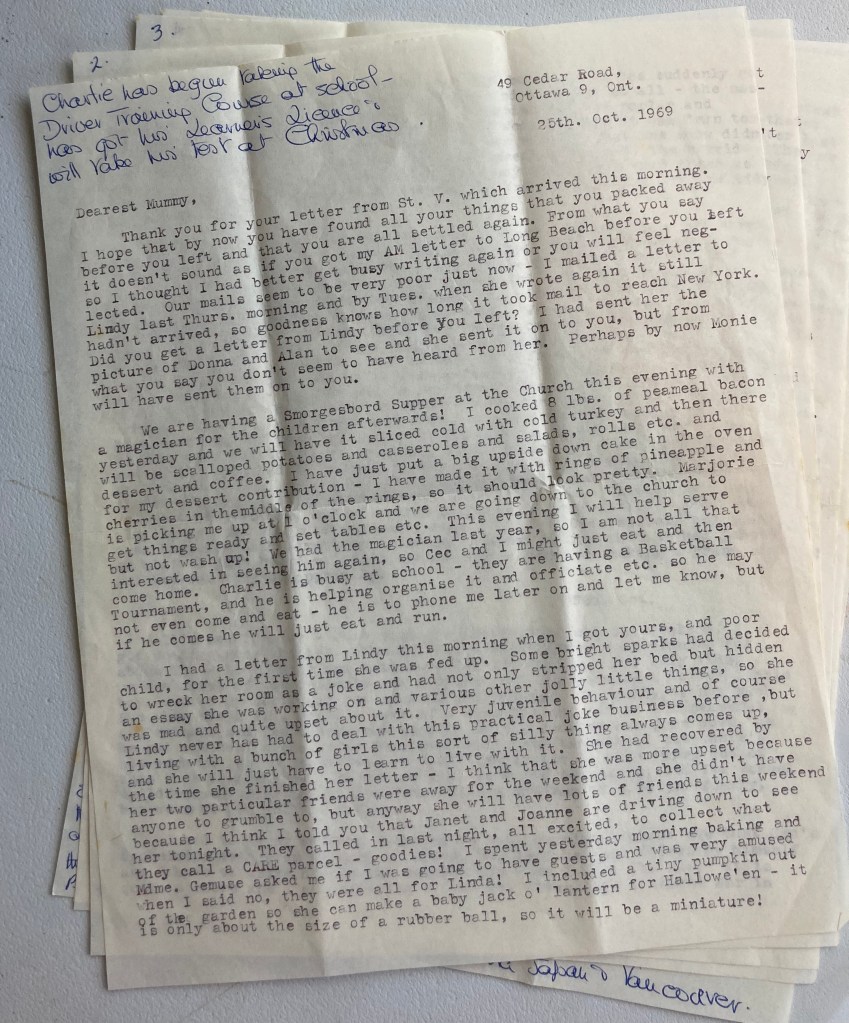 3.
2.
Charlie has begun taking the
Driver Training Course at school -
has got his Learner's Licence &
will take his test at Christmas.
49 Cedar Road,
Ottawa 9, Ont.
25th. Oct. 1969
Dearest Mummy,
Thank you for your letter from St. V. which arrived this morning.
I hope that by now you have found all your things that you packed away
before you left and that you are all settled again. From what you say
it doesn't sound as if you got my AM letter to Long Beach before you left
so I thought I had better get busy writing again or you will feel neg-
lected. Our mails seem to be very poor just now - I mailed a letter to
Lindy last Thurs. morning and by Tues. when she wrote again it still
hadn't arrived, so goodness knows how long it took mail to reach New York.
Did you get a letter from Lindy before you left? I had sent her the
picture of Donna and Alan to see and she sent it on to you, but from
what you say you don't seem to have heard from her. Perhaps by now Monie
will have sent them on to you.
We are having a Smorgesbord Supper at the Church this evening with
a magician for the children afterwards! I cooked 8 lbs. of peameal bacon
yesterday and we will have it sliced cold with cold turkey and then there
will be scalloped potatoes and casseroles and salads, rolls etc. and
dessert and coffee. I have just put a big upside down cake in the oven
for my dessert contribution - I have made it with rings of pineapple and
cherries in themiddle of the rings, so it should look pretty. Marjorie
is picking me up at 1 o'clock and we are going down to the church to
get things ready and set tables etc. This evening I will help serve
but not wash up! We had the magician last year, so I am not all that
interested in seeing him again, so Cec and I might just eat and then
come home. Charlie is busy at school - they are having a Basketball
Tournament, and he is helping organise it and officiate etc. so he may
not even come and eat - he is to phone me later on and let me know, but
if he comes he will just eat and run.
I had a letter from Lindy this morning when I got yours, and poor
child, for the first time she was fed up. Some bright sparks had decided
to wreck her room as a joke and had not only stripped her bed but hidden
an essay she was working on and various other jolly little things, so she
was mad and quite upset about it. Very juvenile behaviour and of course
Lindy never has had to deal with this practical joke business before ,but
living with a bunch of girls this sort of silly thing always comes up,
and she will just have to learn to live with it. She had recovered by
the time she finished her letter - I think that she was more upset because
her two particular friends were away for the weekend and she didn't have
anyone to grumble to, but anyway she will have lots of friends this weekend
because I think I told you that Janet and Joanne are driving down to see
her tonight. They called in last night, all excited, to collect what
they call a CARE parcel - goodies! I spent yesterday morning baking and
Mdme. Gemuse asked me if I was going to have guests and was very amused
when I said no, they were all for Linda! I included a tiny pumpkin out
of the garden so she can make a baby jack o' lantern for Hallowe'en - it
is only about the size of a rubber ball, so it will be a miniature!
Japan & Vancouver.